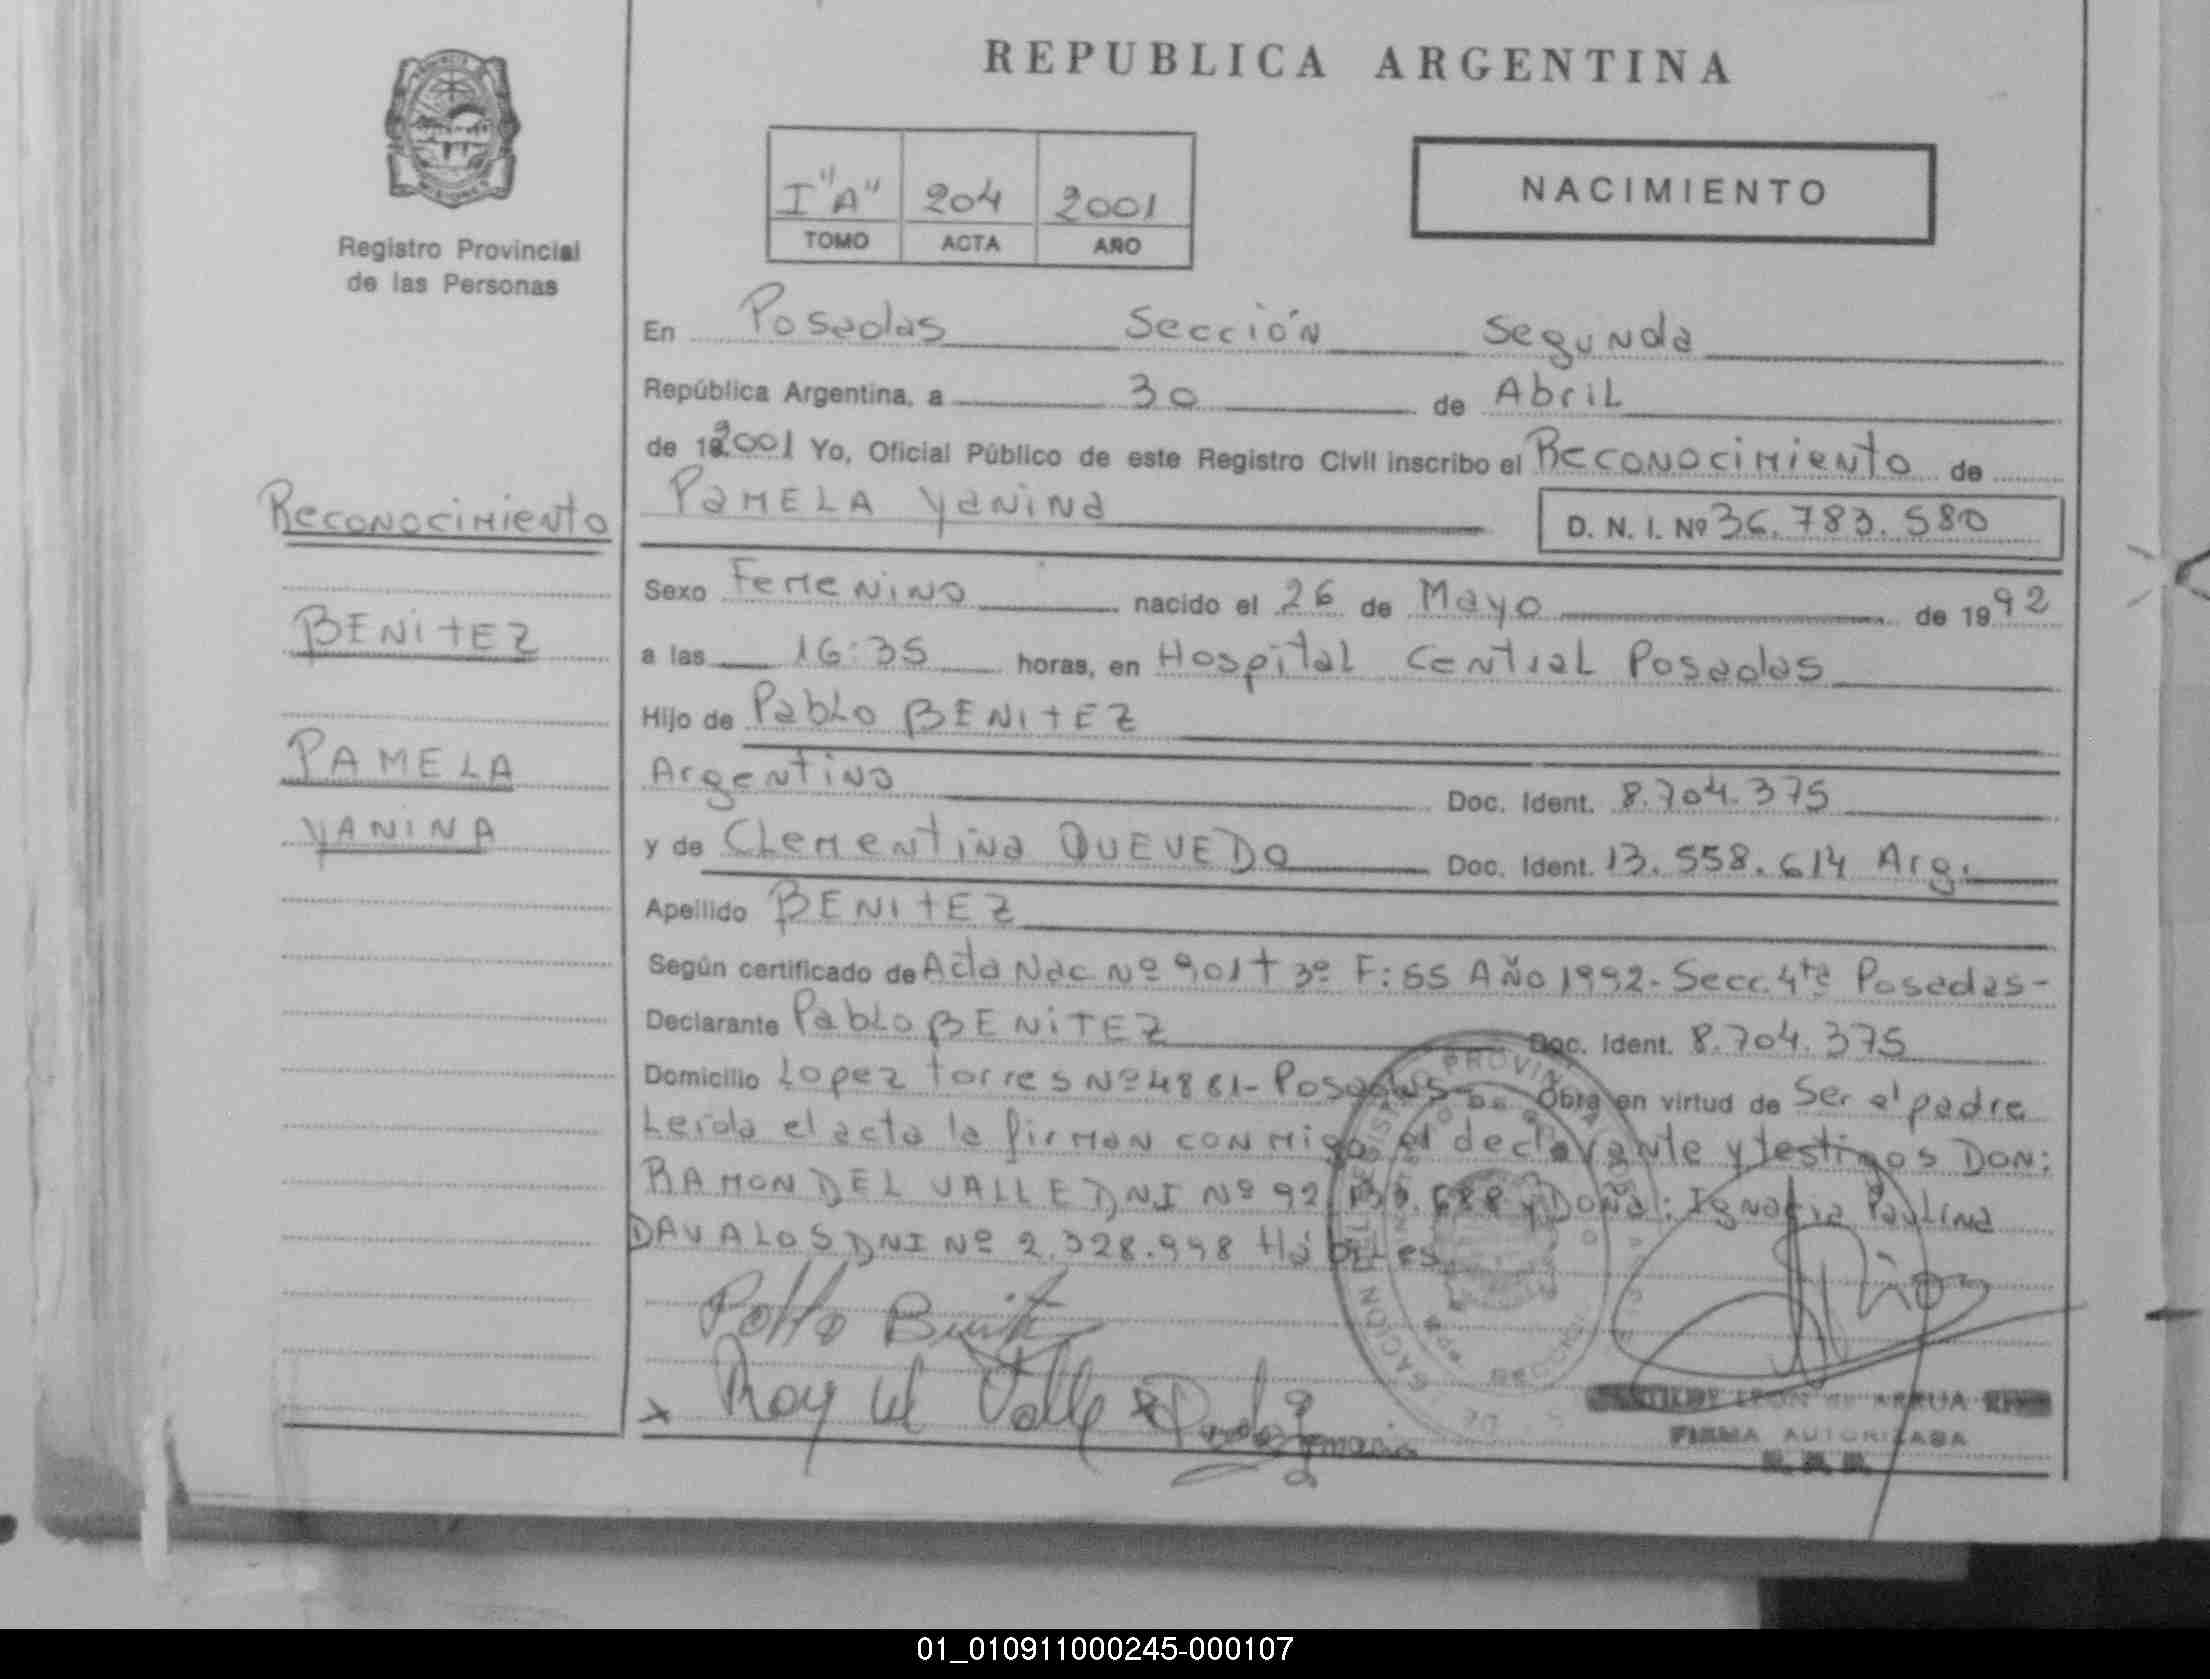 REPUBLICA ARGENTINA
Registro Provincial
de las Personas
I "A" 204 2001
TOMO ACTA AÑO
NACIMIENTO
En Posadas Sección Segunda
República Argentina, a 30 de Abril
de 19 2001 Yo, Oficial Público de este Registro Civil inscribo el Reconocimiento de
PAMELA YANINA D. N. I. Nº 36.783.580
Reconocimiento
BENITEZ
PAMELA
YANINA
Sexo Femenino nacido el 26 de Mayo de 1992
a las 16:35 horas, en Hospital Central Posadas
Hijo de Pablo BENITEZ
Argentino Doc. Ident. 8.704.375
y de Clementina QUEVEDO Doc. Ident. 13.558.614 Arg.
Apellido BENITEZ
Según certificado de Acta Nac Nº 901 t 3º F: 55 Año 1992- Secc. 4ta Posadas-
Declarante Pablo BENITEZ Doc. Ident. 8.704.375
Domicilio Lopez torres Nº 4861- Posadas- Obra en virtud de Ser el padre
Leida el acta la firman conmigo el declarante y testigos DON:
RAMON DEL VALLE DNI Nº 92 y Doña: Ignacia Paulina
DAVALOS DNI Nº 2.328.998 Hábiles
Pablo Benitez
Valle
LEON de ARRUA
FIRMA AUTORIZADA
01_010911000245-000107